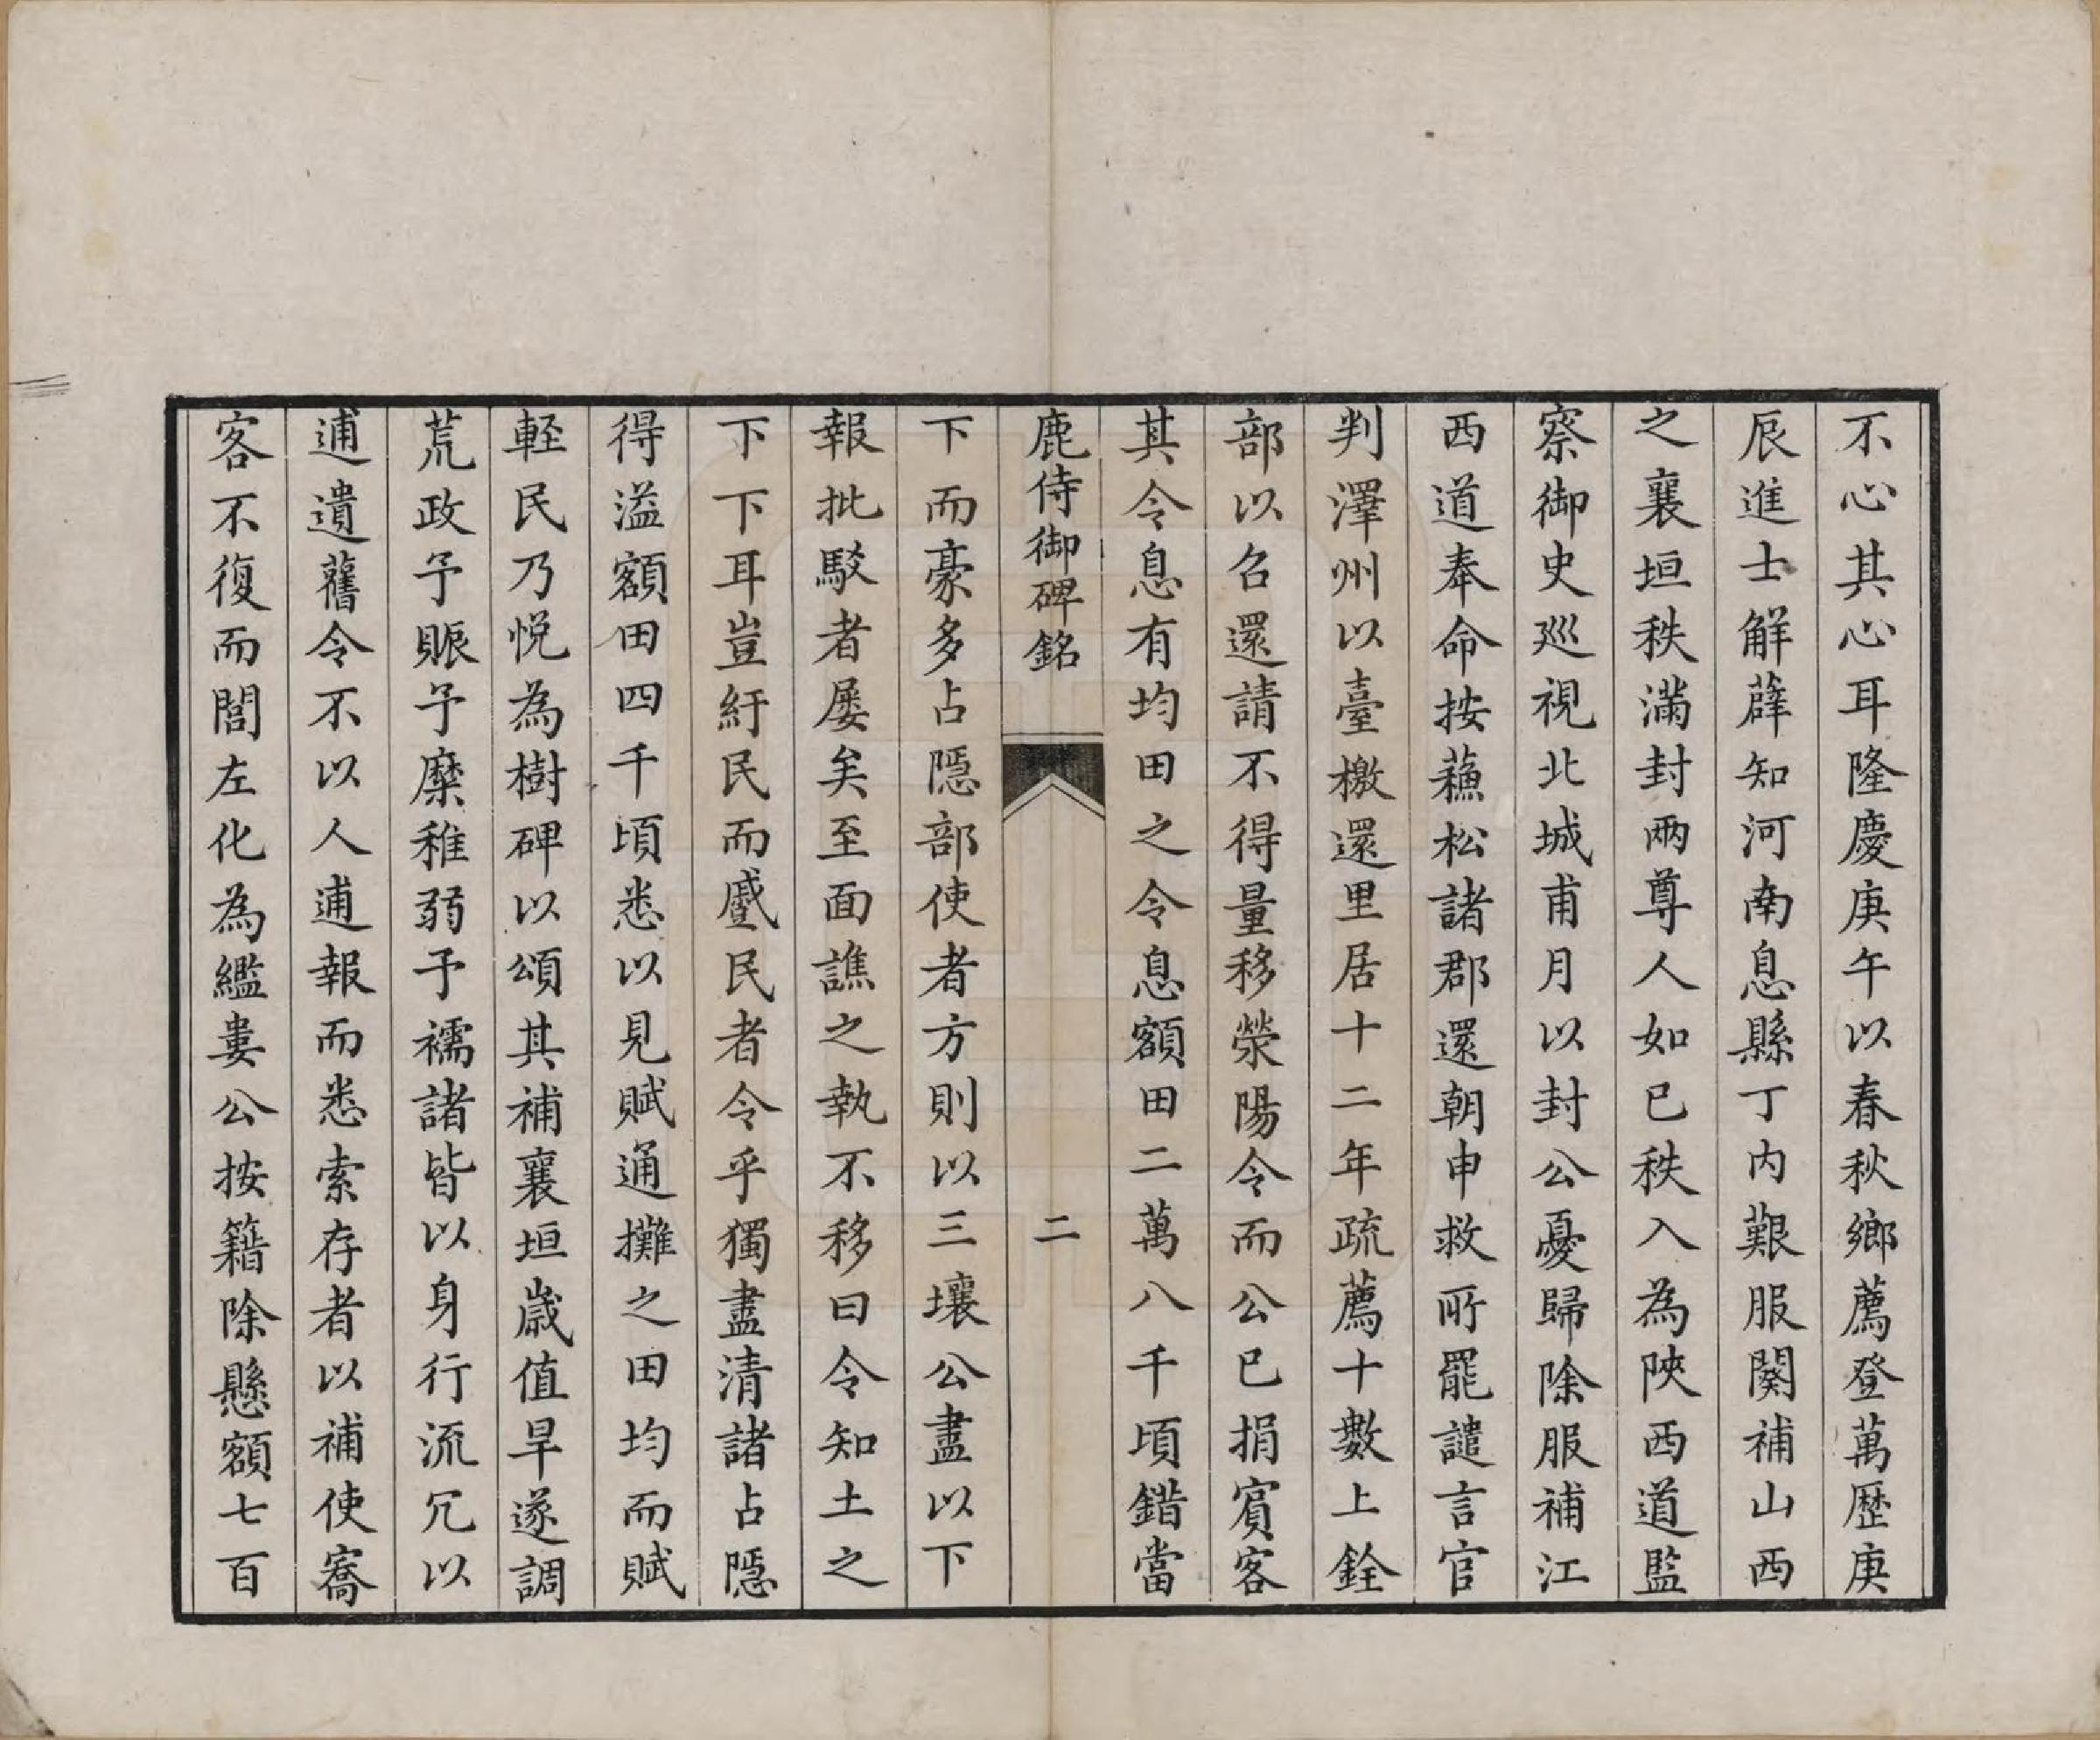 不心其心耳隆慶庚午以春秋鄉薦登萬歷庚
辰進士解薜知河南息縣丁內艱服闋補山西
之襄垣秩滿封兩尊人如已秩入為陝西道監
察御史巡視北城甫月以封公憂歸除服補江
西道奉命按蘓松諸郡還朝申救所罷譴言官
判澤州以臺檄還里居十二年疏薦十數上銓
部以召還請不得量移滎陽令而公已捐賓客
其令息有均田之令息額田二萬八千頃錯當
鹿侍御碑銘 二
下而豪多占隱部使者方則以三壤公盡以下
報批駁者屡矣至面譙之執不移曰令知土之
下下耳豈紆民而蹙民者令乎獨盡清諸占隱
得溢額田四千頃悉以見賦通攤之田均而賦
輕民乃悅為樹碑以頌其補襄垣歲值旱遂調
荒政予賑予糜稚弱予襦諸皆以身行流冗以
逋遺舊令不以人逋報而悉索存者以補使寫
客不復而閭左化為繿婁公按籍除懸額七百